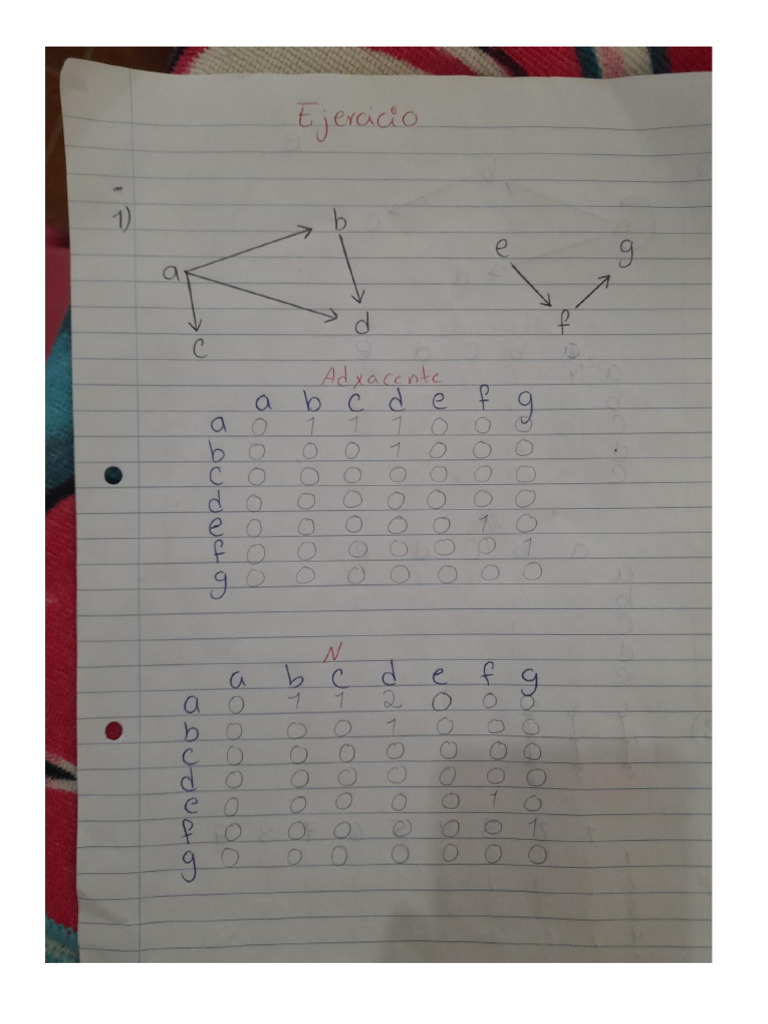 Ejercicio
1)
b
e
g
a
d
f
c
Adxacente
a b c d e f g
a 0 1 1 1 0 0 0
b 0 0 0 1 0 0 0
c 0 0 0 0 0 0 0
d 0 0 0 0 0 0 0
e 0 0 0 0 0 1 0
f 0 0 0 0 0 0 1
g 0 0 0 0 0 0 0
N
a b c d e f g
a 0 1 1 2 0 0 0
b 0 0 0 1 0 0 0
c 0 0 0 0 0 0 0
d 0 0 0 0 0 0 0
e 0 0 0 0 0 1 0
f 0 0 0 0 0 0 1
g 0 0 0 0 0 0 0